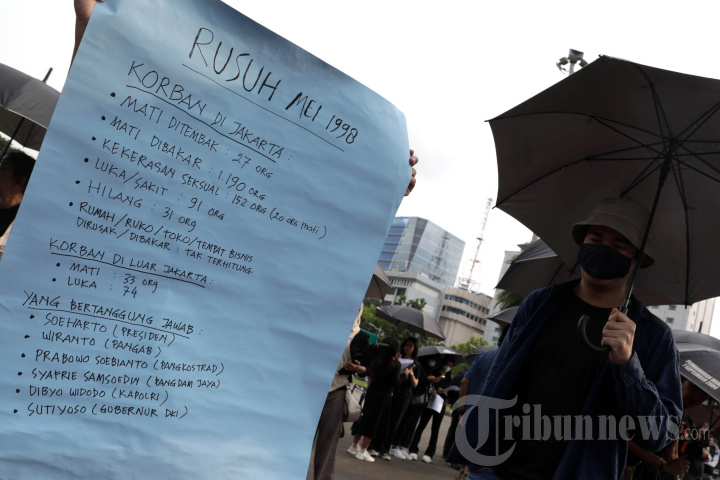 RUSUH MEI 1998
KORBAN DI JAKARTA :
• MATI DITEMBAK : 27 ORG
• MATI DIBAKAR : 1.190 ORG
• KEKERASAN SEKSUAL : 152 ORG (20 ORG MATI)
• LUKA/SAKIT : 91 ORG
• HILANG : 31 ORG
• RUMAH/RUKO/TOKO/TEMPAT BISNIS
DIRUSAK/DIBAKAR : TAK TERHITUNG
KORBAN DI LUAR JAKARTA :
• MATI : 33 ORG
• LUKA : 74
YANG BERTANGGUNG JAWAB :
• SOEHARTO (PRESIDEN)
• WIRANTO (PANGAB)
• PRABOWO SOEBIANTO (PANGKOSTRAD)
• SYAFRIE SAMSOEDIN (PANGDAM JAYA)
• DIBYO WIDODO (KAPOLRI)
• SUTIYOSO (GUBERNUR DKI)
Tribunnews.com